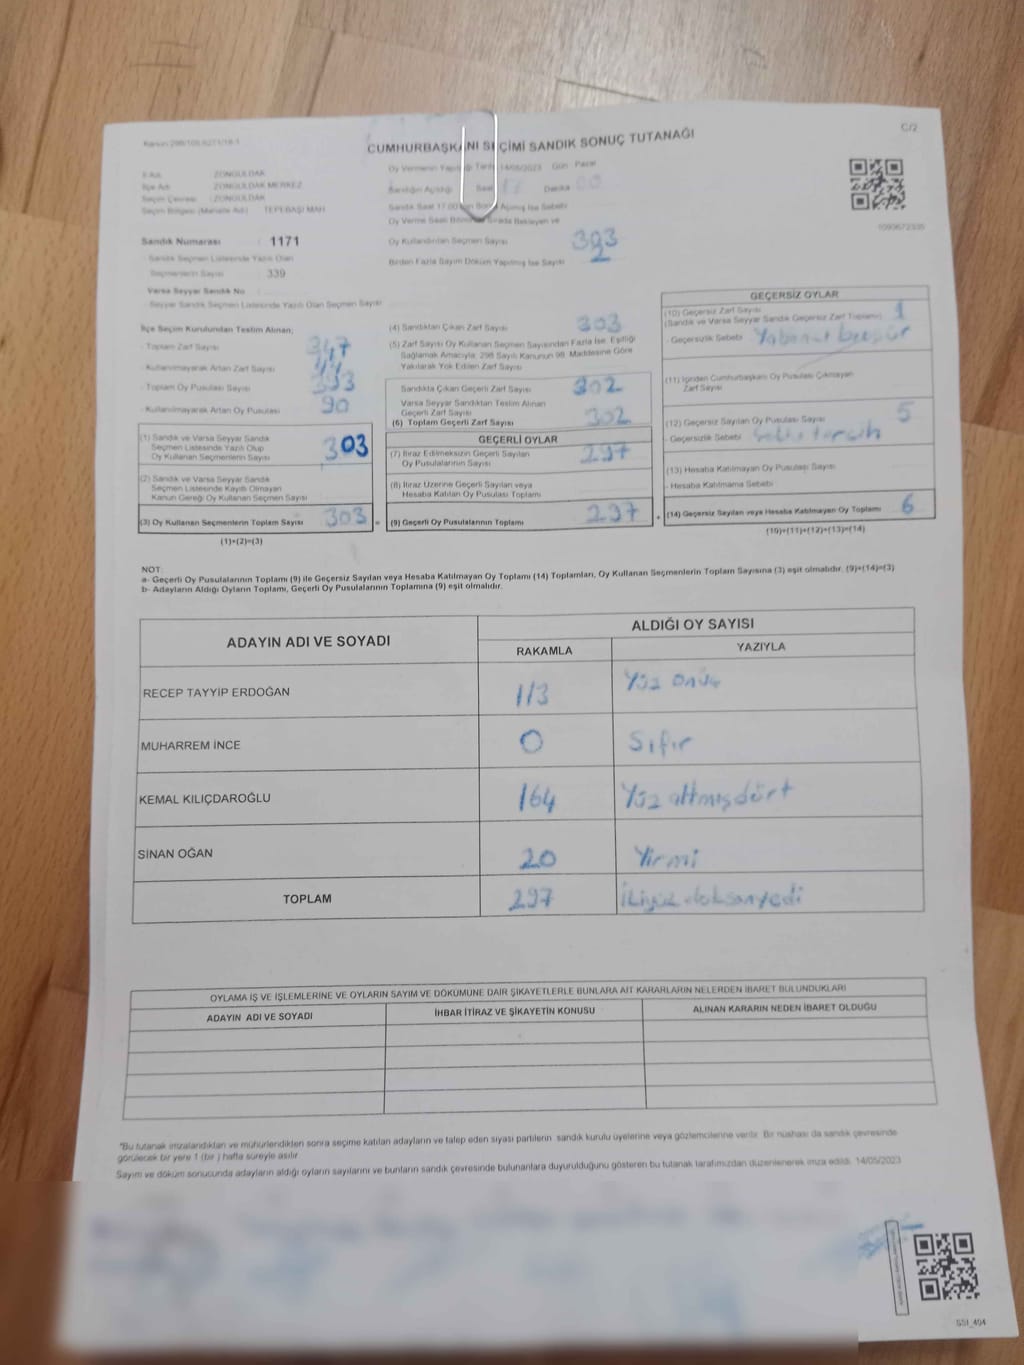 C/2
CUMHURBAŞKANI SEÇİMİ SANDIK SONUÇ TUTANAĞI
İl Adı : ZONGULDAK
İlçe Adı : ZONGULDAK MERKEZ
Seçim Çevresi : ZONGULDAK
Seçim Bölgesi (Mahalle Adı) : TEPEBAŞI MAH.
Sandık Numarası : 1171
- Sandık Seçmen Listesinde Yazılı Olan
Seçmenlerin Sayısı : 339
Varsa Seyyar Sandık No
- Seyyar Sandık Seçmen Listesinde Yazılı Olan Seçmen Sayısı
Oy Vermenin Yapıldığı Tarih 14/05/2023 Gün Pazar
Sandığın Açıldığı Saat Dakika 00
Oy Kullandırılan Seçmen Sayısı 303
Birden Fazla Sayım Döküm Yapılmış İse Sayısı
İlçe Seçim Kurulundan Teslim Alınan;
- Toplam Zarf Sayısı 347
- Kullanılmayarak Artan Zarf Sayısı 44
- Toplam Oy Pusulası Sayısı 393
- Kullanılmayarak Artan Oy Pusulası 90
(1) Sandık ve Varsa Seyyar Sandık
Seçmen Listesinde Yazılı Olup
Oy Kullanan Seçmenlerin Sayısı 303
(2) Sandık ve Varsa Seyyar Sandık
Seçmen Listesinde Kayıtlı Olmayan
Kanun Gereği Oy Kullanan Seçmen Sayısı
(3) Oy Kullanan Seçmenlerin Toplam Sayısı 303 =
(1)+(2)=(3)
(4) Sandıktan Çıkan Zarf Sayısı 303
(5) Zarf Sayısı Oy Kullanan Seçmen Sayısından Fazla İse, Eşitliği
Sağlamak Amacıyla, 298 Sayılı Kanunun 98. Maddesine Göre
Yakılarak Yok Edilen Zarf Sayısı
Sandıkta Çıkan Geçerli Zarf Sayısı 302
Varsa Seyyar Sandıktan Teslim Alınan
Geçerli Zarf Sayısı
(6) Toplam Geçerli Zarf Sayısı 302
GEÇERLİ OYLAR
(7) İtiraz Edilmeksizin Geçerli Sayılan
Oy Pusulalarının Sayısı 297
(8) İtiraz Üzerine Geçerli Sayılan veya
Hesaba Katılan Oy Pusulası Toplamı
(9) Geçerli Oy Pusulalarının Toplamı 297 +
GEÇERSİZ OYLAR
(10) Geçersiz Zarf Sayısı
(Sandık ve Varsa Seyyar Sandık Geçersiz Zarf Toplamı) 1
- Geçersizlik Sebebi
(11) İçinden Cumhurbaşkanı Oy Pusulası Çıkmayan
Zarf Sayısı
(12) Geçersiz Sayılan Oy Pusulası Sayısı 5
- Geçersizlik Sebebi tercih
(13) Hesaba Katılmayan Oy Pusulası Sayısı
- Hesaba Katılmama Sebebi
(14) Geçersiz Sayılan veya Hesaba Katılmayan Oy Toplamı 6
(10)+(11)+(12)+(13)=(14)
NOT:
a- Geçerli Oy Pusulalarının Toplamı (9) ile Geçersiz Sayılan veya Hesaba Katılmayan Oy Toplamı (14) Toplamları, Oy Kullanan Seçmenlerin Toplam Sayısına (3) eşit olmalıdır. (9)+(14)=(3)
b- Adayların Aldığı Oyların Toplamı, Geçerli Oy Pusulalarının Toplamına (9) eşit olmalıdır.
ADAYIN ADI VE SOYADI
ALDIĞI OY SAYISI
RAKAMLA YAZIYLA
RECEP TAYYİP ERDOĞAN 113 Yüz onüç
MUHARREM İNCE 0 Sıfır
KEMAL KILIÇDAROĞLU 164 Yüz altmışdört
SİNAN OĞAN 20 Yirmi
TOPLAM 297 İkiyüz doksanyedi
OYLAMA İŞ VE İŞLEMLERİNE VE OYLARIN SAYIM VE DÖKÜMÜNE DAİR ŞİKAYETLERLE BUNLARA AİT KARARLARIN NELERDEN İBARET BULUNDUKLARI
ADAYIN ADI VE SOYADI İHBAR İTİRAZ VE ŞİKAYETİN KONUSU ALINAN KARARIN NEDEN İBARET OLDUĞU
*Bu tutanak imzalandıktan ve mühürlendikten sonra seçime katılan adayların ve talep eden siyasi partilerin sandık kurulu üyelerine veya gözlemcilerine verilir. Bir nüshası da sandık çevresinde
görülecek bir yere 1 (bir) hafta süreyle asılır.
Sayım ve döküm sonucunda adayların aldığı oyların sayılarını ve bunların sandık çevresinde bulunanlara duyurulduğunu gösteren bu tutanak tarafımızdan düzenlenerek imza edildi. 14/05/2023